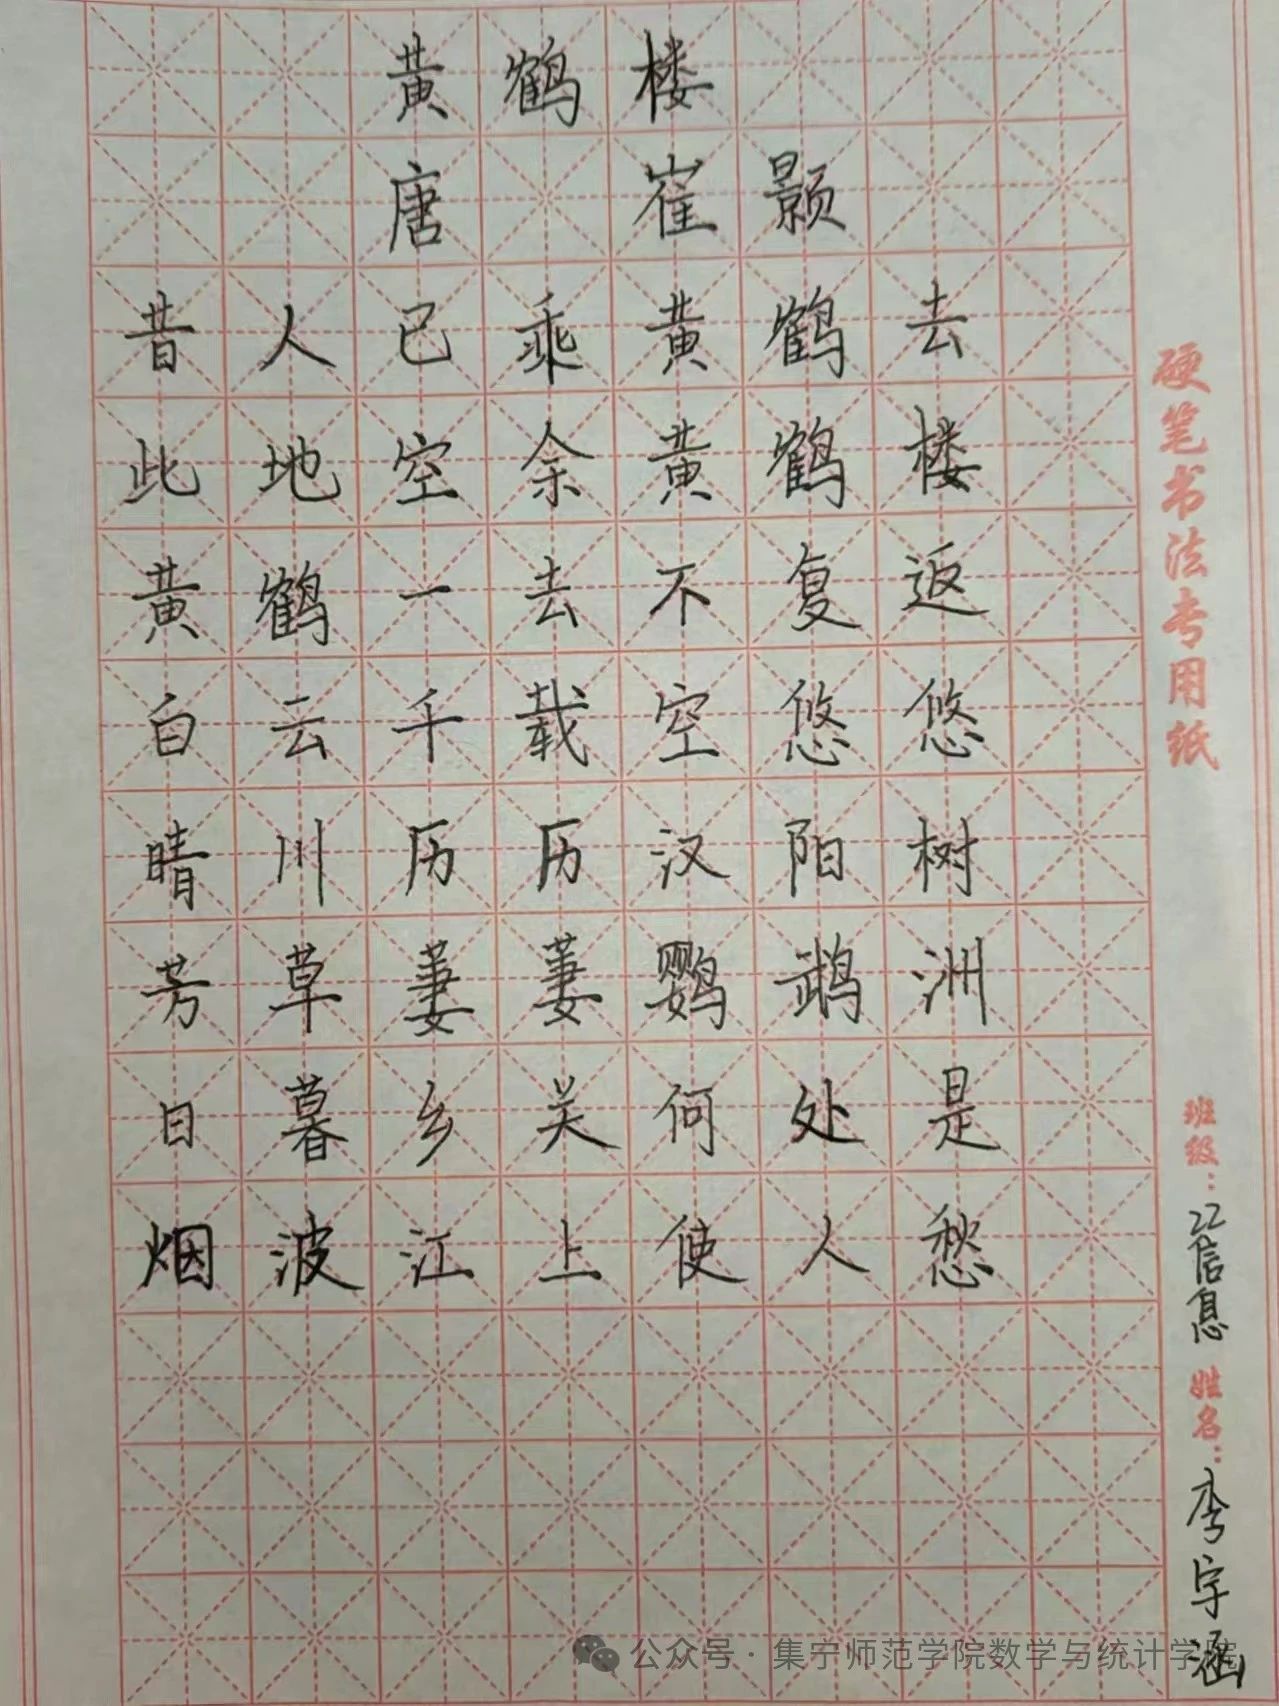 黄鹤楼
唐 崔颢
昔人已乘黄鹤去
此地空余黄鹤楼
黄鹤一去不复返
白云千载空悠悠
晴川历历汉阳树
芳草萋萋鹦鹉洲
日暮乡关何处是
烟波江上使人愁
硬笔书法专用纸
班级：22信息
姓名：李宇涵
公众号·集宁师范学院数学与统计学院